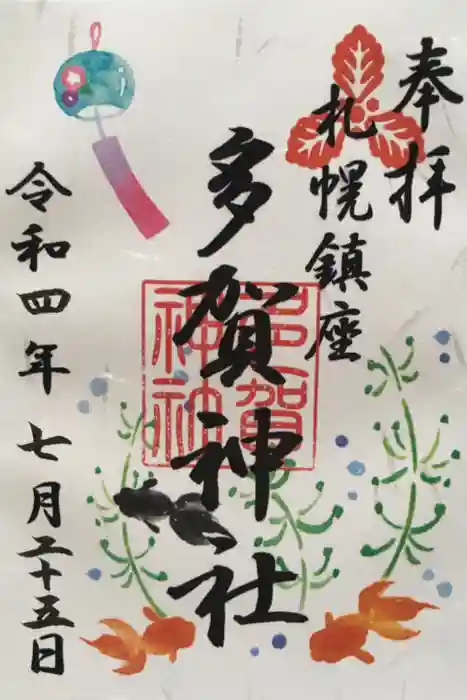 奉拝
札幌鎮座
多賀神社
多賀
神社
令和四年七月二十五日